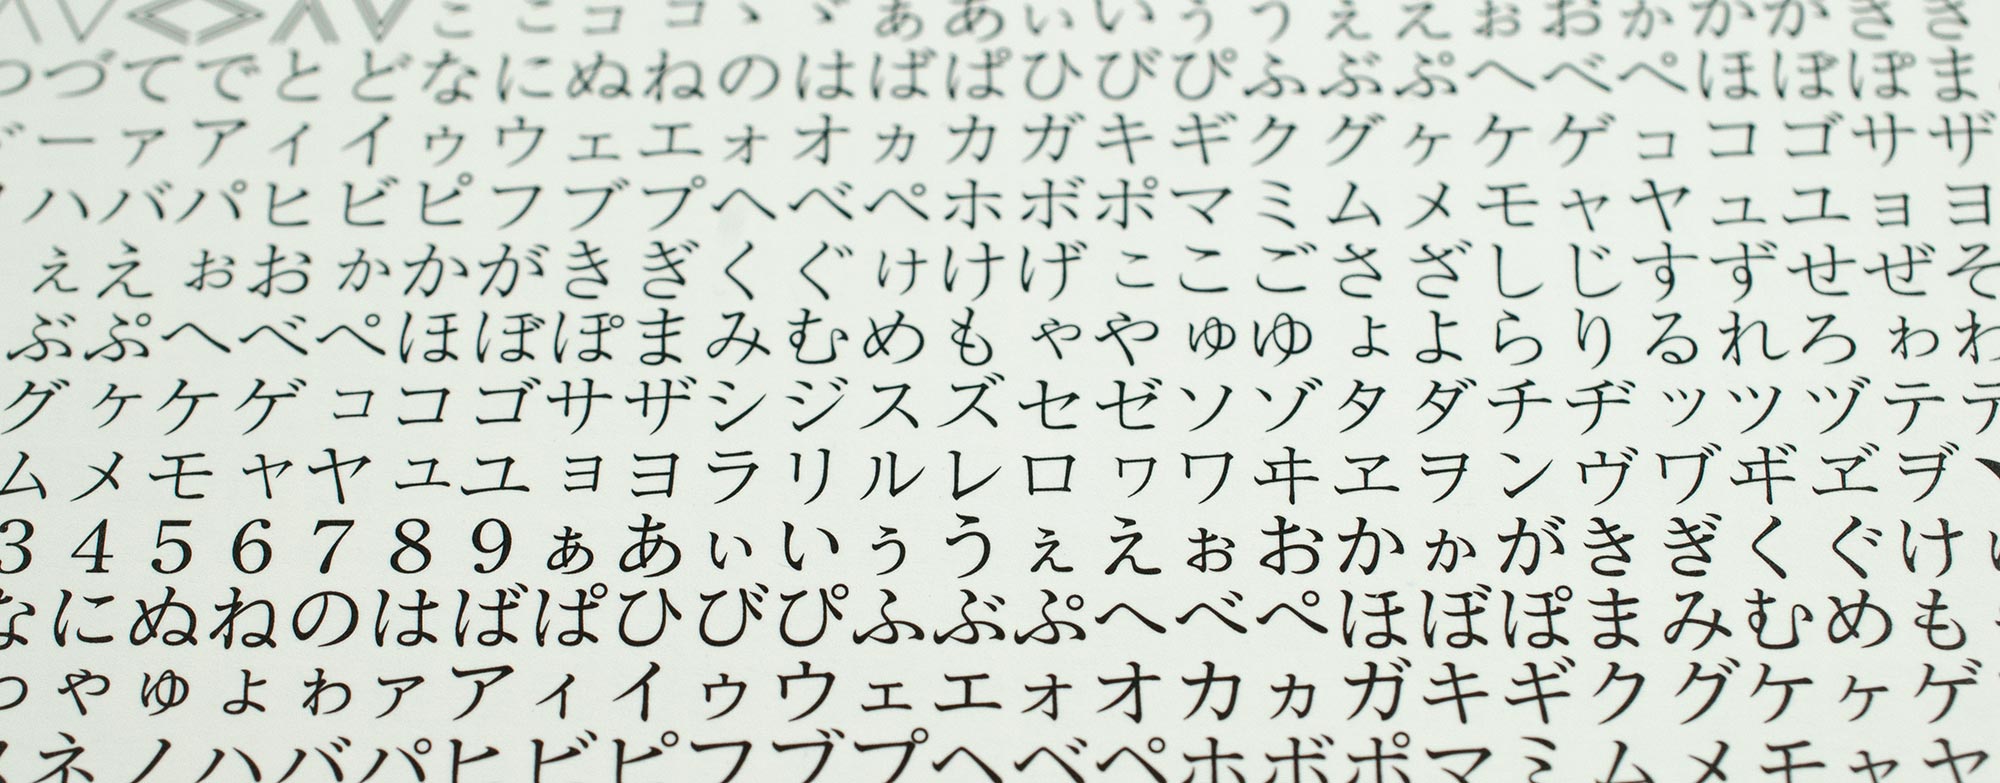 こ こ コ コ ゝ ゞ ぁ あ ぃ い ぅ う ぇ え ぉ お ゕ か が さ き
つ づ て で と ど な に ぬ ね の は ば ぱ ひ び ぴ ふ ぶ ぷ へ べ ぺ ほ ぼ ぽ ま
ー ァ ア ィ イ ゥ ウ ェ エ ォ オ ヵ カ ガ キ ギ ク グ ヶ ケ ゲ ョ コ ゴ サ ザ
ハ バ パ ヒ ビ ピ フ ブ プ ヘ ベ ペ ホ ボ ポ マ ミ ム メ モ ャ ヤ ュ ユ ョ ヨ
ぇ え ぉ お ゕ か が き ぎ く ぐ ゖ け げ こ こ ご さ ざ し じ す ず せ ぜ そ
ぶ ぷ へ べ ぺ ほ ぼ ぽ ま み む め も ゃ や ゅ ゆ ょ よ ら り る れ ろ ゎ わ
グ ヶ ケ ゲ コ コ ゴ サ ザ シ ジ ス ズ セ ゼ ソ ゾ タ ダ チ ヂ ッ ツ ヅ テ デ
ム メ モ ャ ヤ ュ ユ ョ ヨ ラ リ ル レ ロ ヮ ワ ヰ ヱ ヲ ン ヴ ヷ ヸ ヹ ヺ
3 4 5 6 7 8 9 ぁ あ ぃ い ぅ う ぇ え ぉ お か ゕ が き ぎ く ぐ け
な に ぬ ね の は ば ぱ ひ び ぴ ふ ぶ ぷ へ べ ぺ ほ ぼ ぽ ま み む め も
っ ゃ ゅ ょ ゎ ァ ア ィ イ ゥ ウ ェ エ ォ オ カ ヵ ガ キ ギ ク グ ケ ヶ ゲ
ネ ノ ハ バ パ ヒ ビ ピ フ ブ プ ヘ ベ ペ ホ ボ ポ マ ミ ム メ モ ャ ヤ